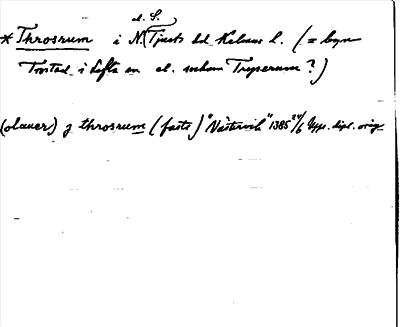 el. S.
* Throsrum i N. Tjusts hd Kalmar l. (= byn
Trostad i Lofta sn el. socken Tryserum?)
(olauer) j throsrum (faste) "Västervik" 1385 24/6 Upps. dipl. orig.